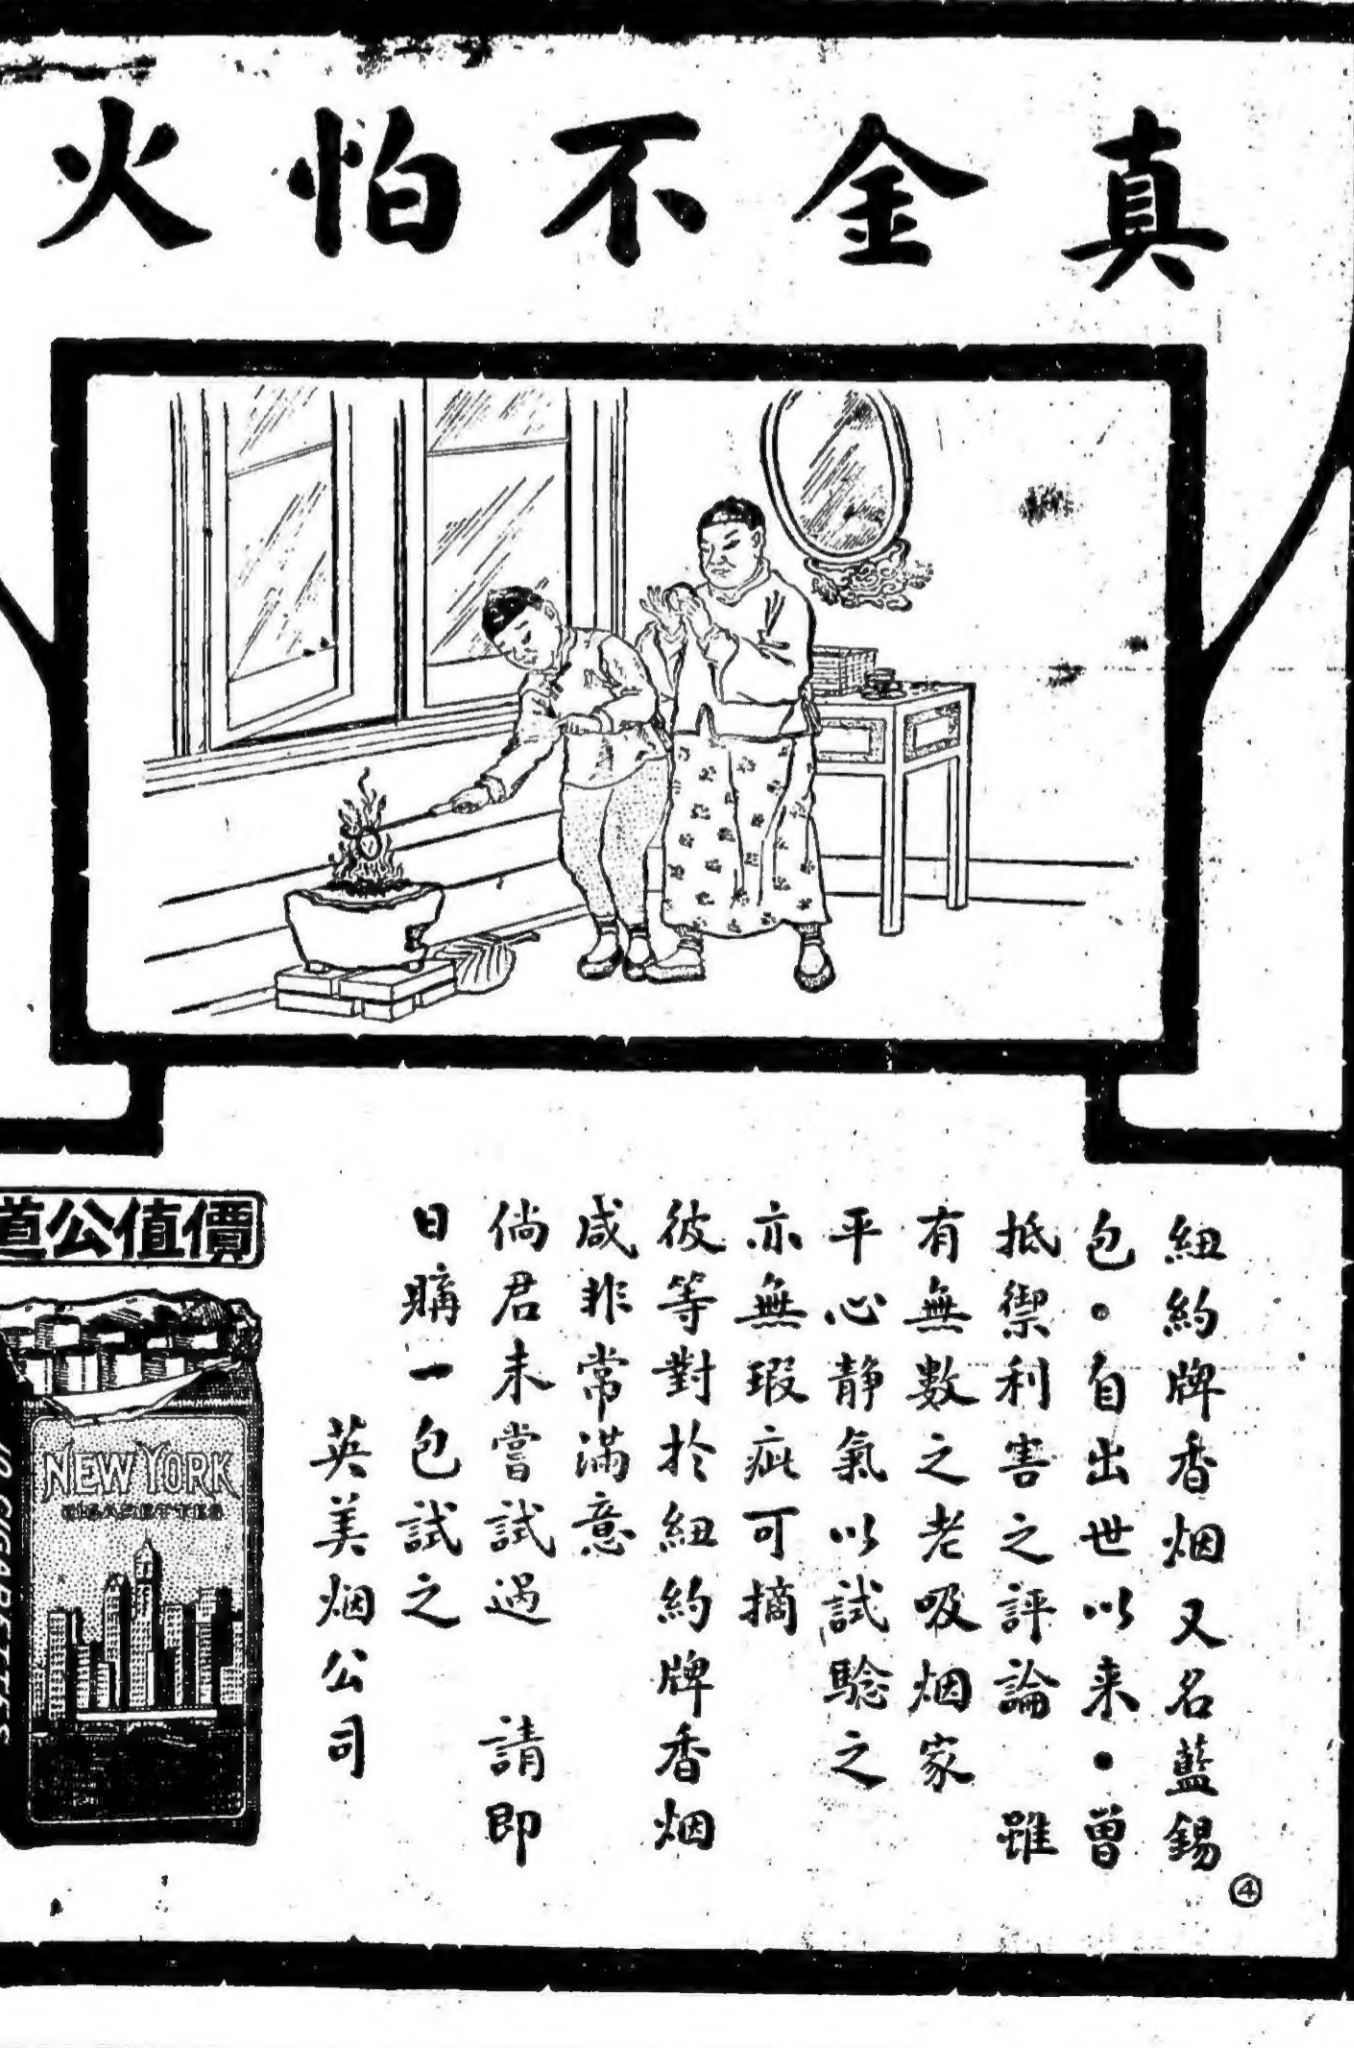 真金不怕火
紐約牌香烟又名藍錫
包。自出世以来・曾
抵禦利害之評論　雖
有無數之老吸烟家
平心静氣以試驗之
亦無瑕疵可摘
彼等對於紐約牌香烟
咸非常滿意
倘君未嘗試過　請即
日購一包試之
英美烟公司
④
價值公道
NEW YORK
CIGARETTES
10 CIGARETTES